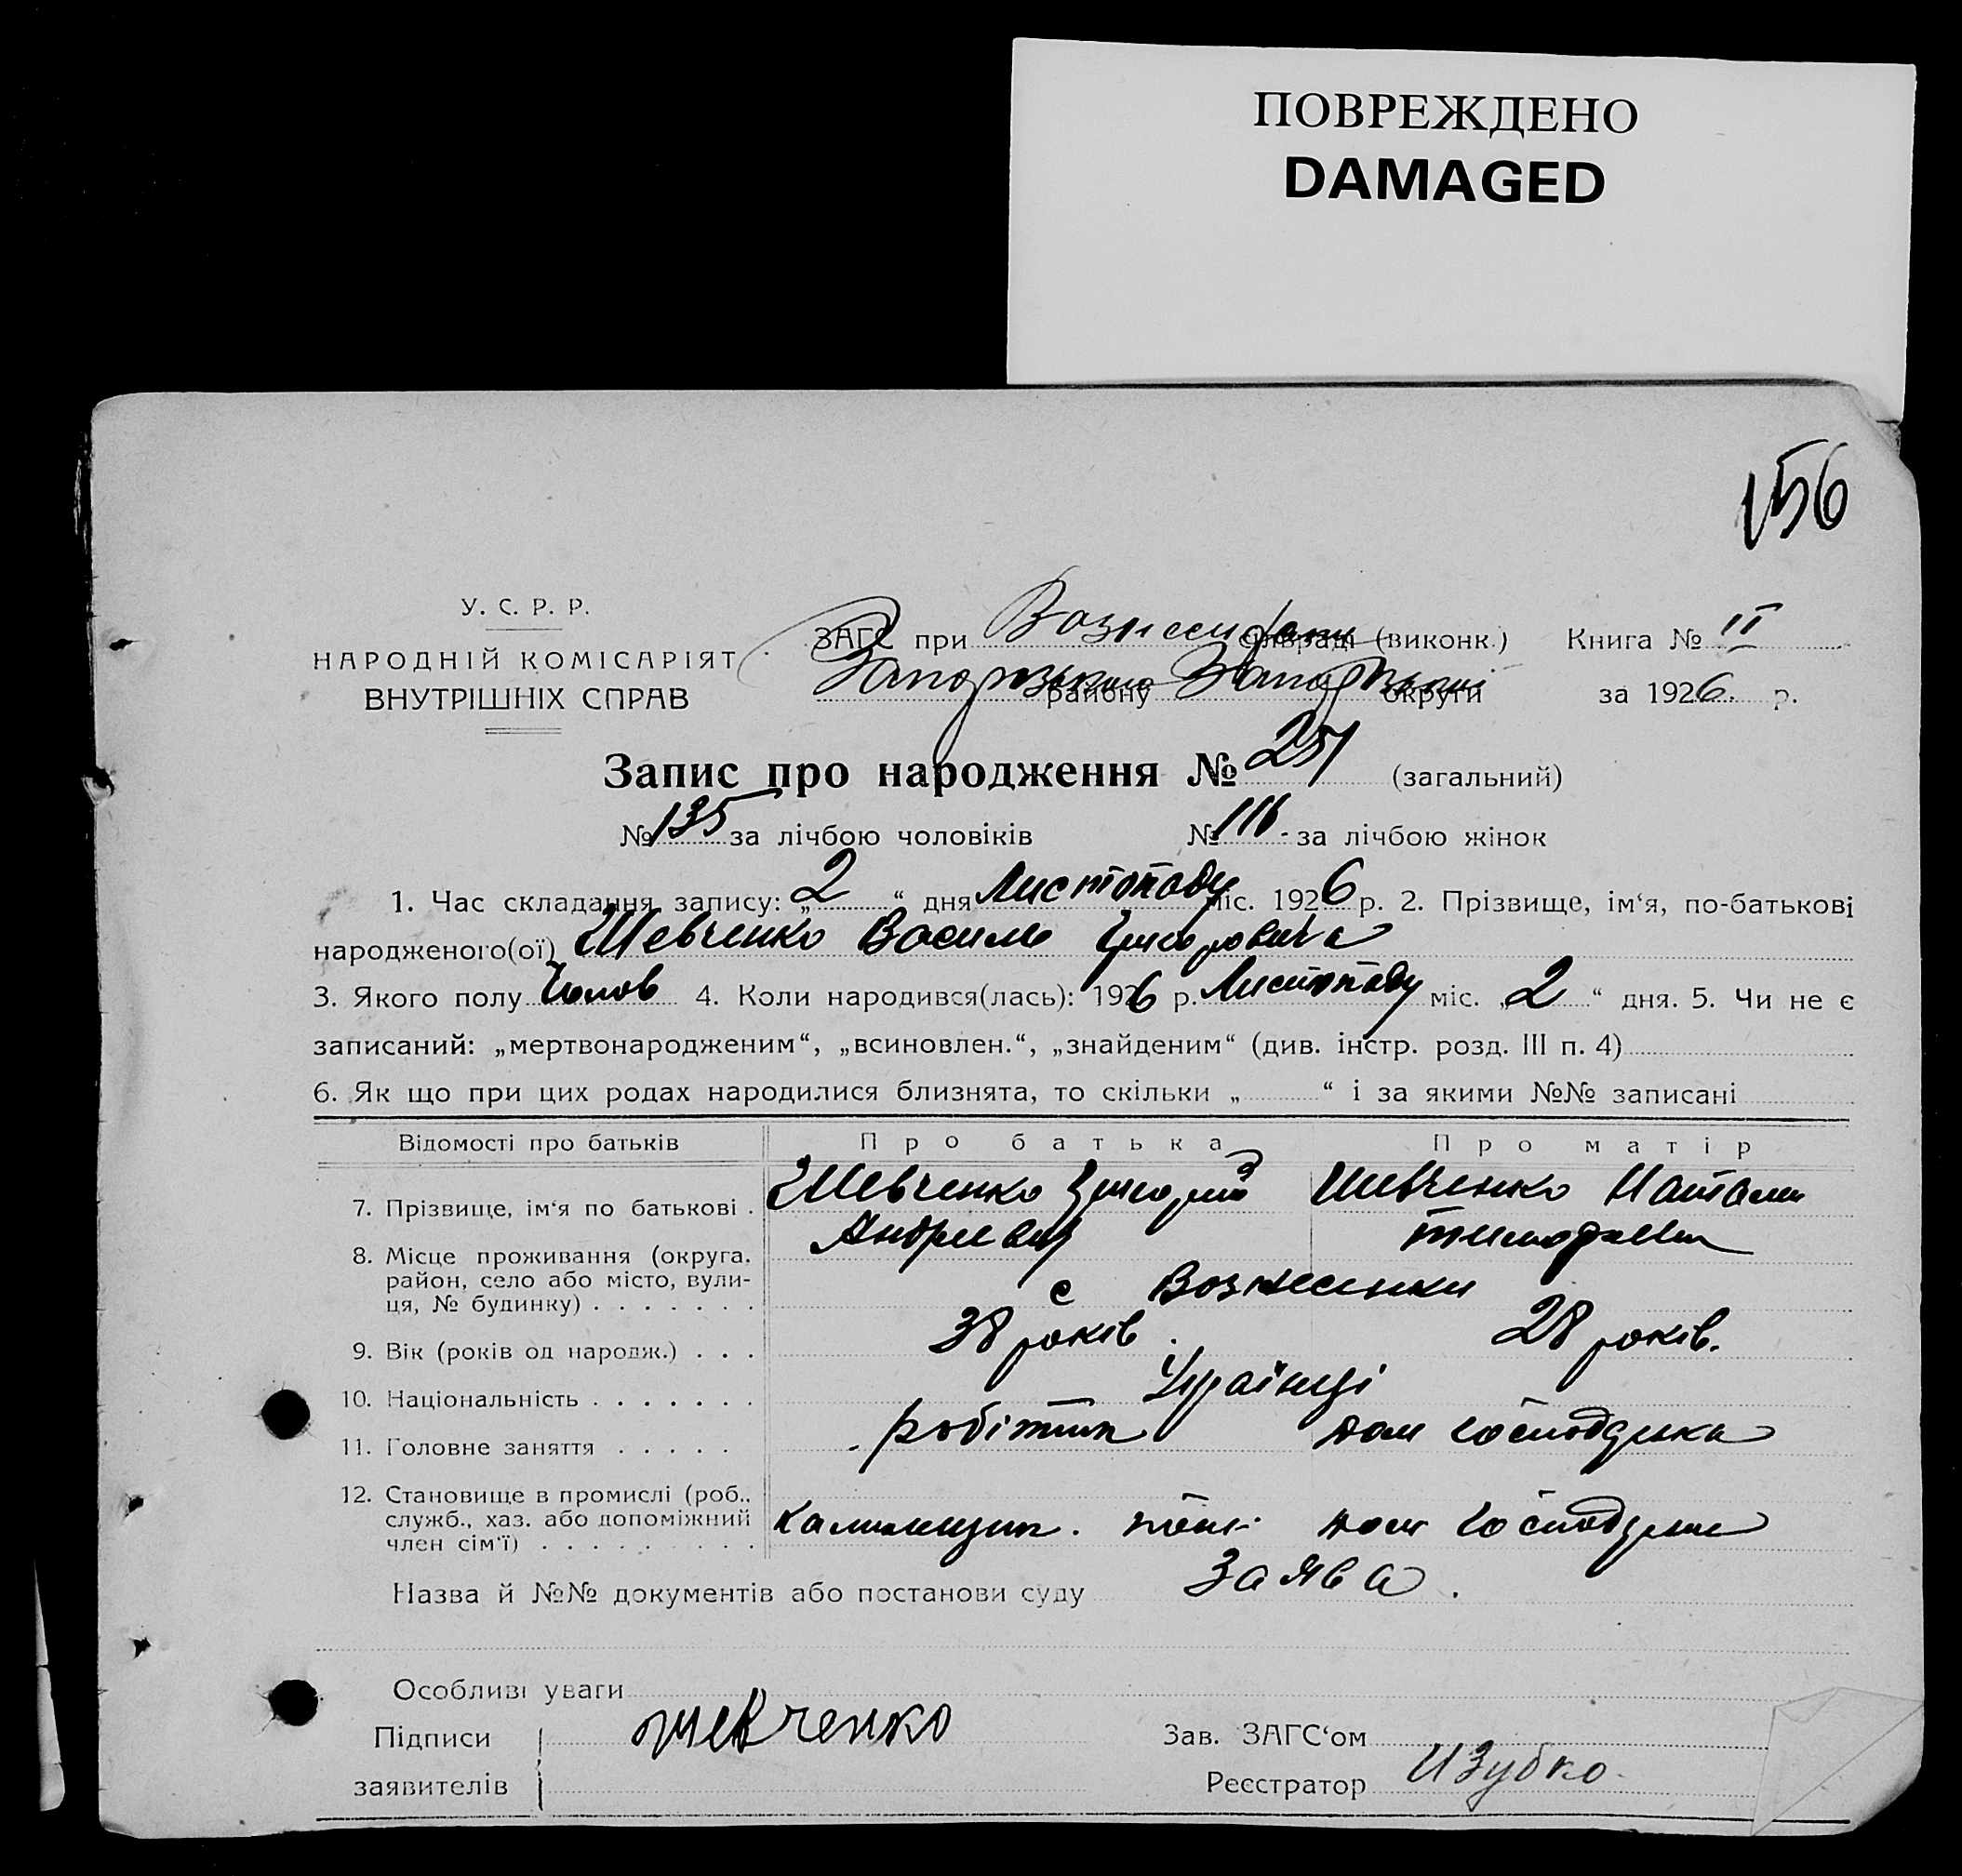 ПОВРЕЖДЕНО
DAMAGED
156
У. С. Р. Р.
НАРОДНІЙ КОМІСАРІЯТ
ВНУТРІШНІХ СПРАВ
ЗАГС при сільраді (виконк.) Книга № II
району округи за 1926 р.
Запис про народження № 251 (загальний)
№ 135 за лічбою чоловіків № 116 за лічбою жінок
1. Час складання запису: „2“ дня Листопаду міс. 1926 р. 2. Прізвище, ім‘я, по-батькові
народженого(ої) Шевченко Василь Григоровича
3. Якого полу Чолов 4. Коли народився(лась): 1926 р. Листопаду міс. „2“ дня. 5. Чи не є
записаний: „мертвонародженим“, „всиновлен.“, „знайденим“ (див. інстр. розд. III п. 4)
6. Як що при цих родах народилися близнята, то скільки „ “ і за якими №№ записані
Відомості про батьків Про батька Про матір
7. Прізвище, ім‘я по батькові . Шевченко Григорій Шевченко Наталя
Андриевич
8. Місце проживання (округа, район, село або місто, вули-
ця, № будинку) . . . . . . . с Вознесенки
9. Вік (років од народж.) . . . 38 років. 28 років.
10. Національність . . . . . . . Українці
11. Головне заняття . . . . . робітник дом господарка
12. Становище в промислі (роб.,
служб., хаз. або допоміжний
член сім‘ї) . . . . . . . . . дом
Назва й №№ документів або постанови суду Заява.
Особливі уваги
Підписи Шевченко Зав. ЗАГС‘ом
заявителів Реєстратор ИЗубко